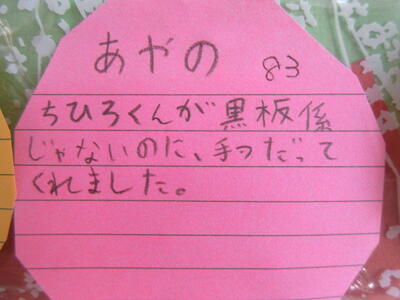 あやの 83
ちひろくんが黒板係
じゃないのに、手つだって
くれました。